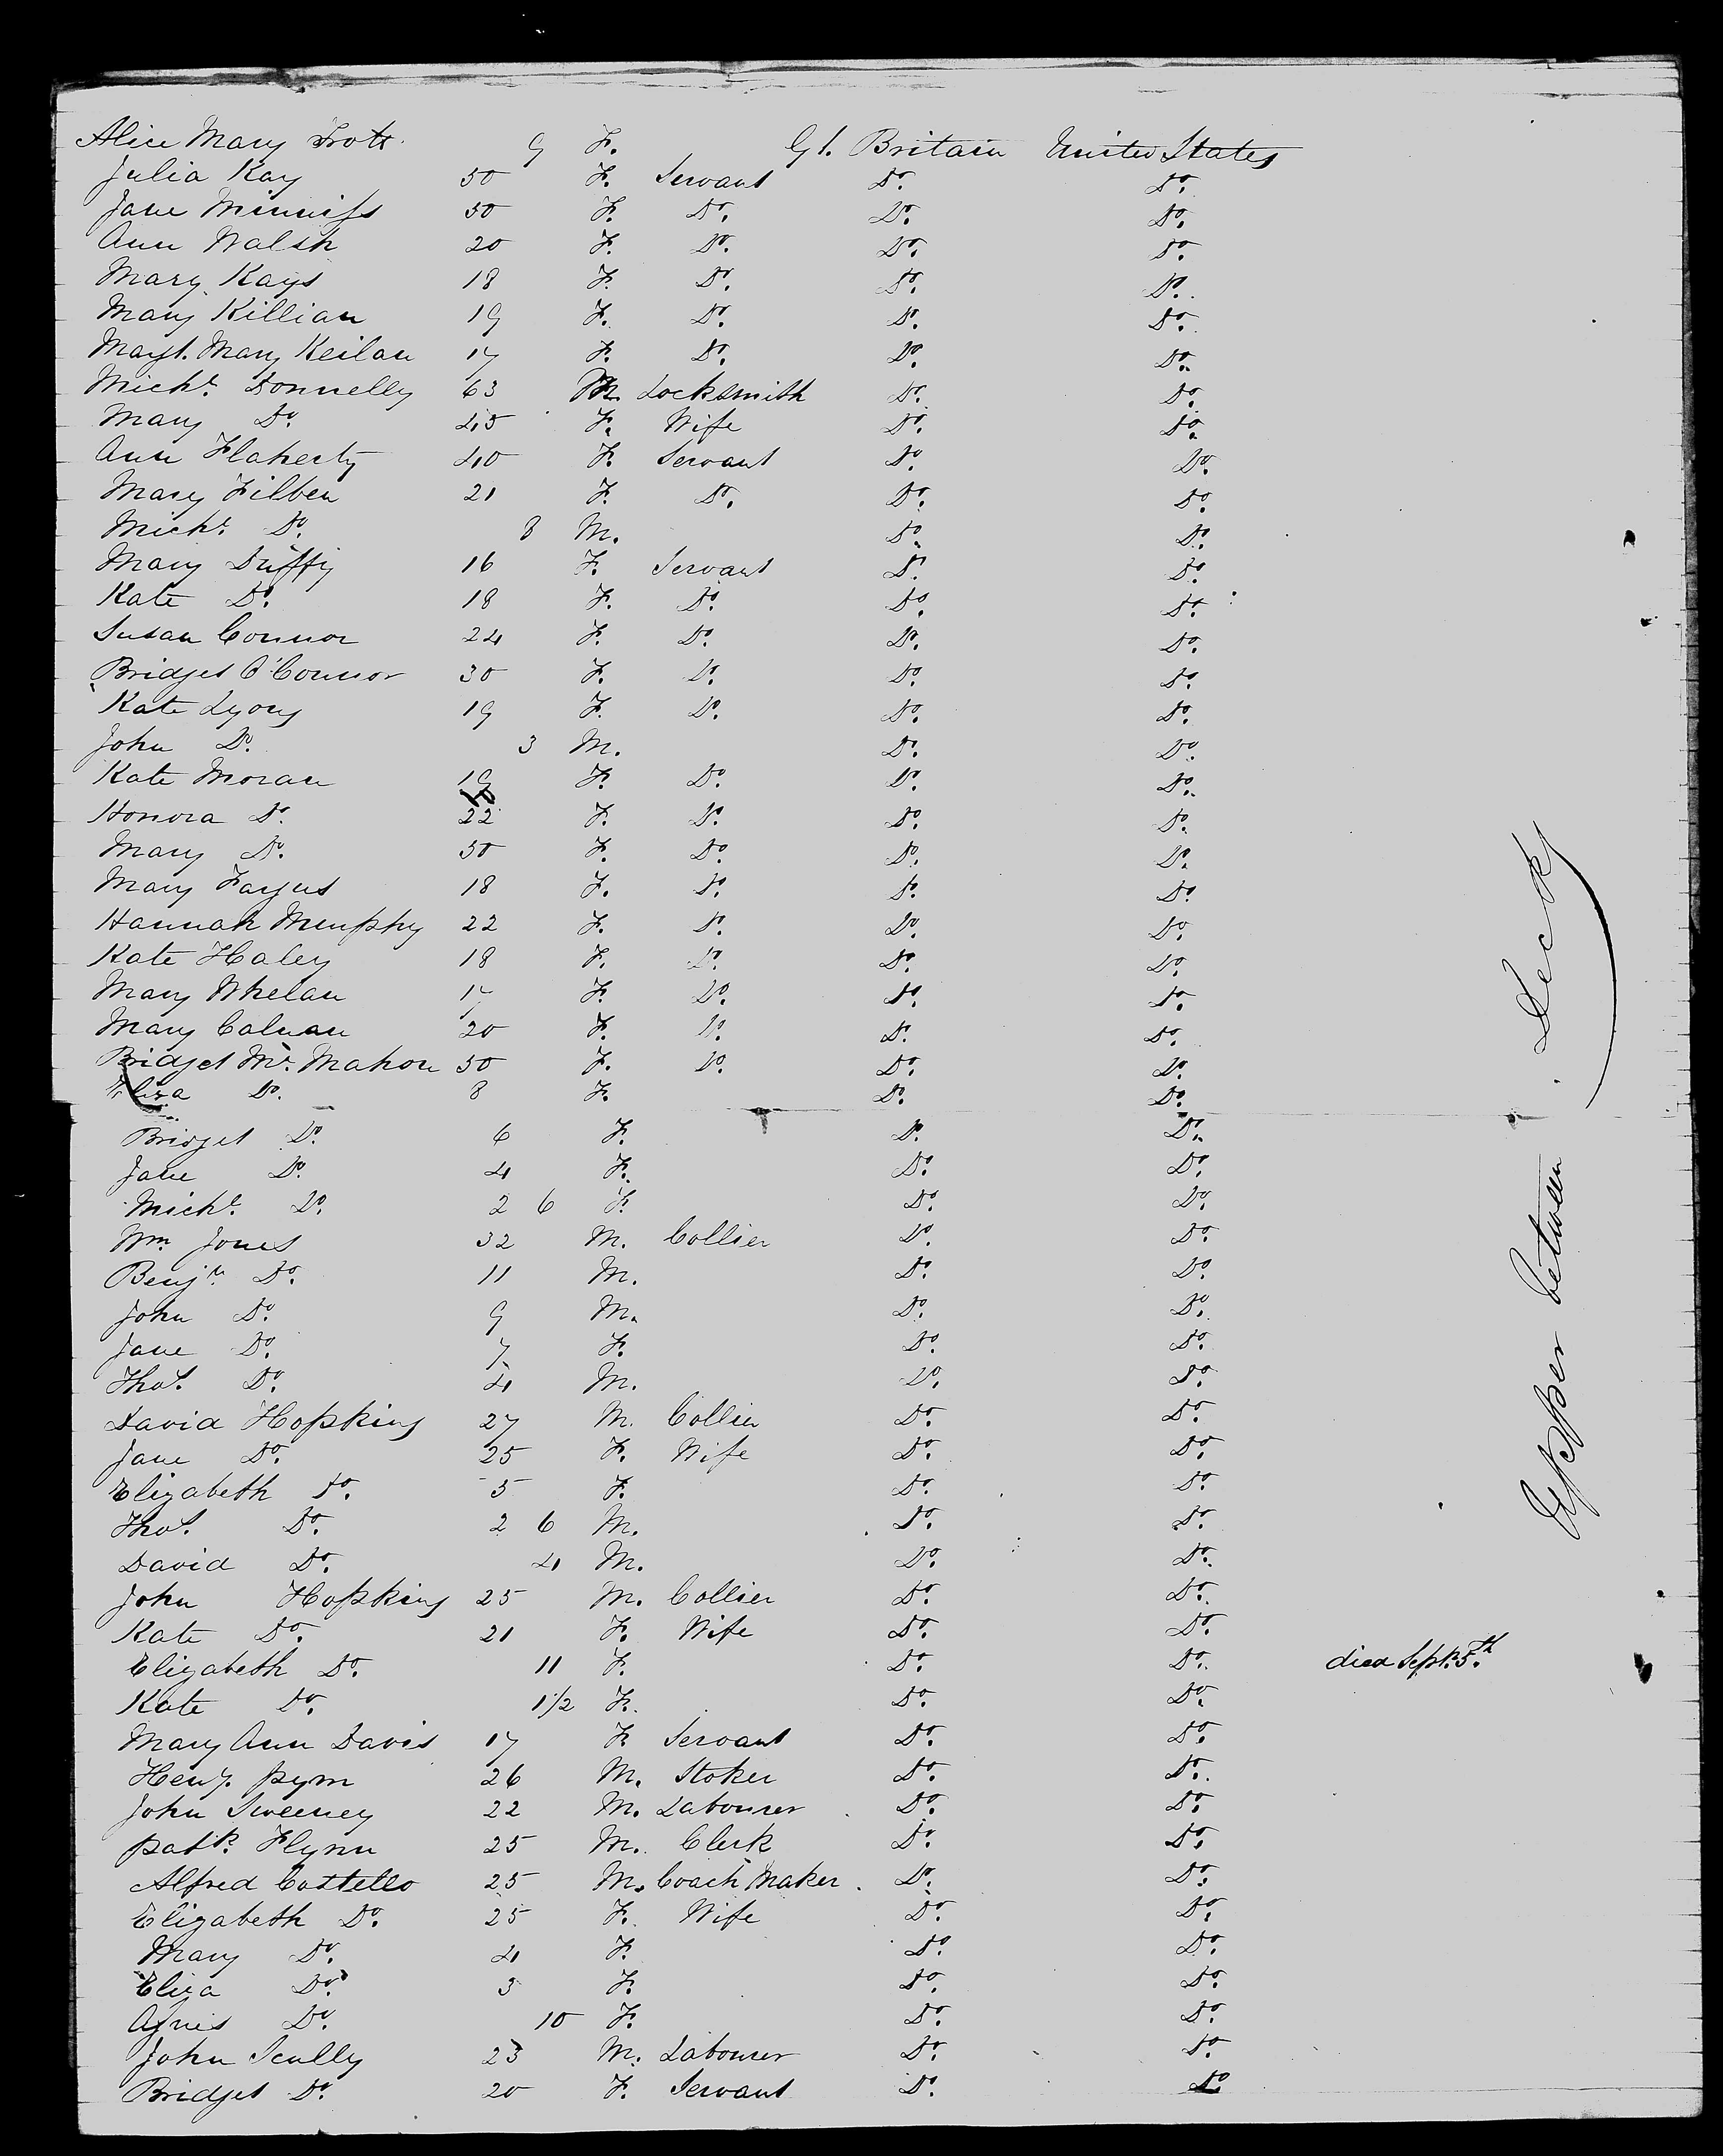 Alice Mary Trott. 9 F. Gt. Britain United States
Julia Kay 50 F. Servant Do. Do.
Jane Minniss 50 F. Do. Do. Do.
Ann Walsh 20 F. Do. Do. Do.
Mary Kays 18 F. Do. Do. Do.
Mary Killian 19 F. Do. Do. Do.
Margt. Mary Keilan 17 F. Do. Do. Do.
Michl. Donnelly 63 M. Locksmith Do. Do.
Mary Do. 45 F. Wife Do. Do.
Ann Flaherty 40 F. Servant Do. Do.
Mary Filben 21 F. Do. Do. Do.
Michl. Do. 8 M. Do. Do.
Mary Duffy 16 F. Servant Do. Do.
Kate Do. 18 F. Do. Do. Do.
Susan Connor 24 F. Do. Do. Do.
Bridget O'Connor 30 F. Do. Do. Do.
Kate Lyons 19 F. Do. Do. Do.
John Do. 3 M. Do. Do.
Kate Moran 19 F. Do. Do. Do.
Honora Do. 22 F. Do. Do. Do.
Mary Do. 50 F. Do. Do. Do.
Mary Fargus 18 F. Do. Do. Do.
Hannah Murphy 22 F. Do. Do. Do.
Kate Haley 18 F. Do. Do. Do.
Mary Whelan 17 F. Do. Do. Do.
Mary Calnan 20 F. Do. Do. Do.
Bridget Mc. Mahon 50 F. Do. Do. Do.
Eliza Do. 8 F. Do. Do.
Bridget Do. 6 F. Do. Do.
Jane Do. 4 F. Do. Do.
Michl. Do. 2 6 F. Do. Do.
Wm. Jones 32 M. Collier Do. Do.
Benjn. Do. 11 M. Do. Do.
John Do. 9 M. Do. Do.
Jane Do. 7 F. Do. Do.
Thos. Do. 4 M. Do. Do.
David Hopkins 27 M. Collier Do. Do.
Jane Do. 25 F. Wife Do. Do.
Elizabeth Do. 5 F. Do. Do.
Thos. Do. 2 6 M. Do. Do.
David Do. 4 M. Do. Do.
John Hopkins 25 M. Collier Do. Do.
Kate Do. 21 F. Wife Do. Do.
Elizabeth Do. 11 F. Do. Do. died Sept. 5th
Kate Do. 1 1/2 F. Do. Do.
Mary Ann Davis 17 F. Servant Do. Do.
Heny. Pym 26 M. Stoker Do. Do.
John Sweeney 22 M. Labourer Do. Do.
Patk. Flynn 25 M. Clerk Do. Do.
Alfred Costello 25 M. Coach Maker Do. Do.
Elizabeth Do. 25 F. Wife Do. Do.
Mary Do. 4 F. Do. Do.
Eliza Do. 3 F. Do. Do.
Agnes Do. 10 F. Do. Do.
John Scully 23 M. Labourer Do. Do.
Bridget Do. 20 F. Servant Do. Do
Upper between Decks